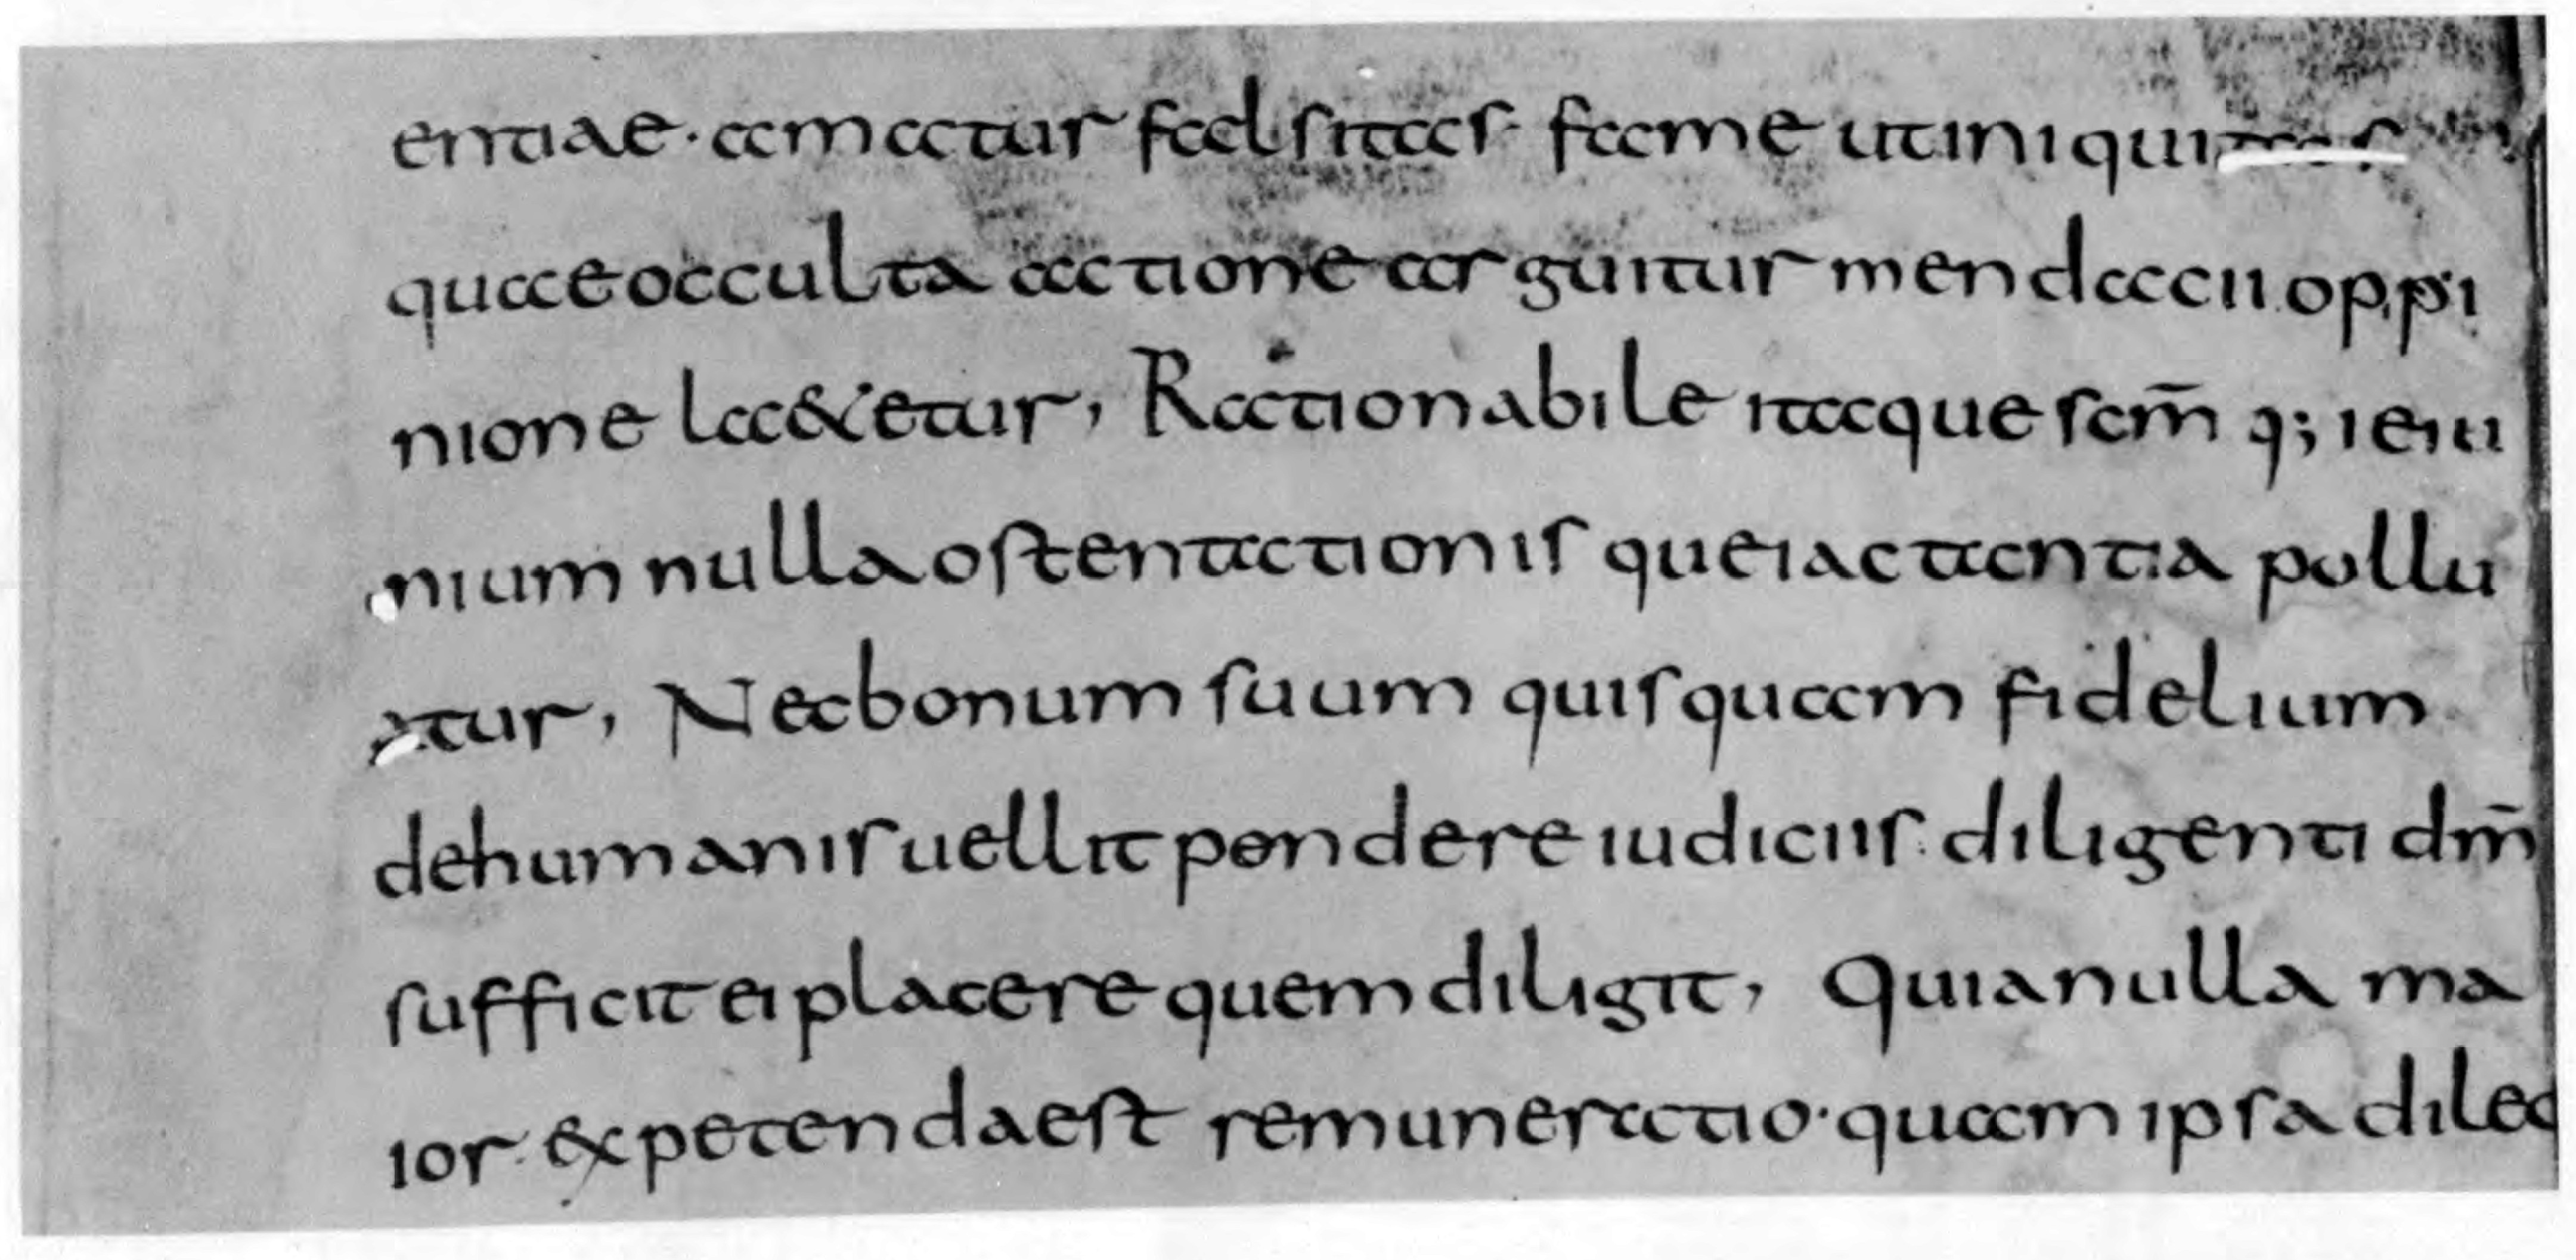 entiae · amatur falsitas · fame ut iniquitas
quae occulta actione arguitur mendacii oppi
nione laetetur, Rationabile itaque scm̄ q; ieiu
nium nulla ostentationis que iactantia pollu
atur, Nec bonum suum quisquam fidelium
de humanis uellit pendere iudiciis · diligenti dm̄
sufficit ei placere quem diligit, Quia nulla ma
ior · expetenda est remuneratio · quam ipsa dilec